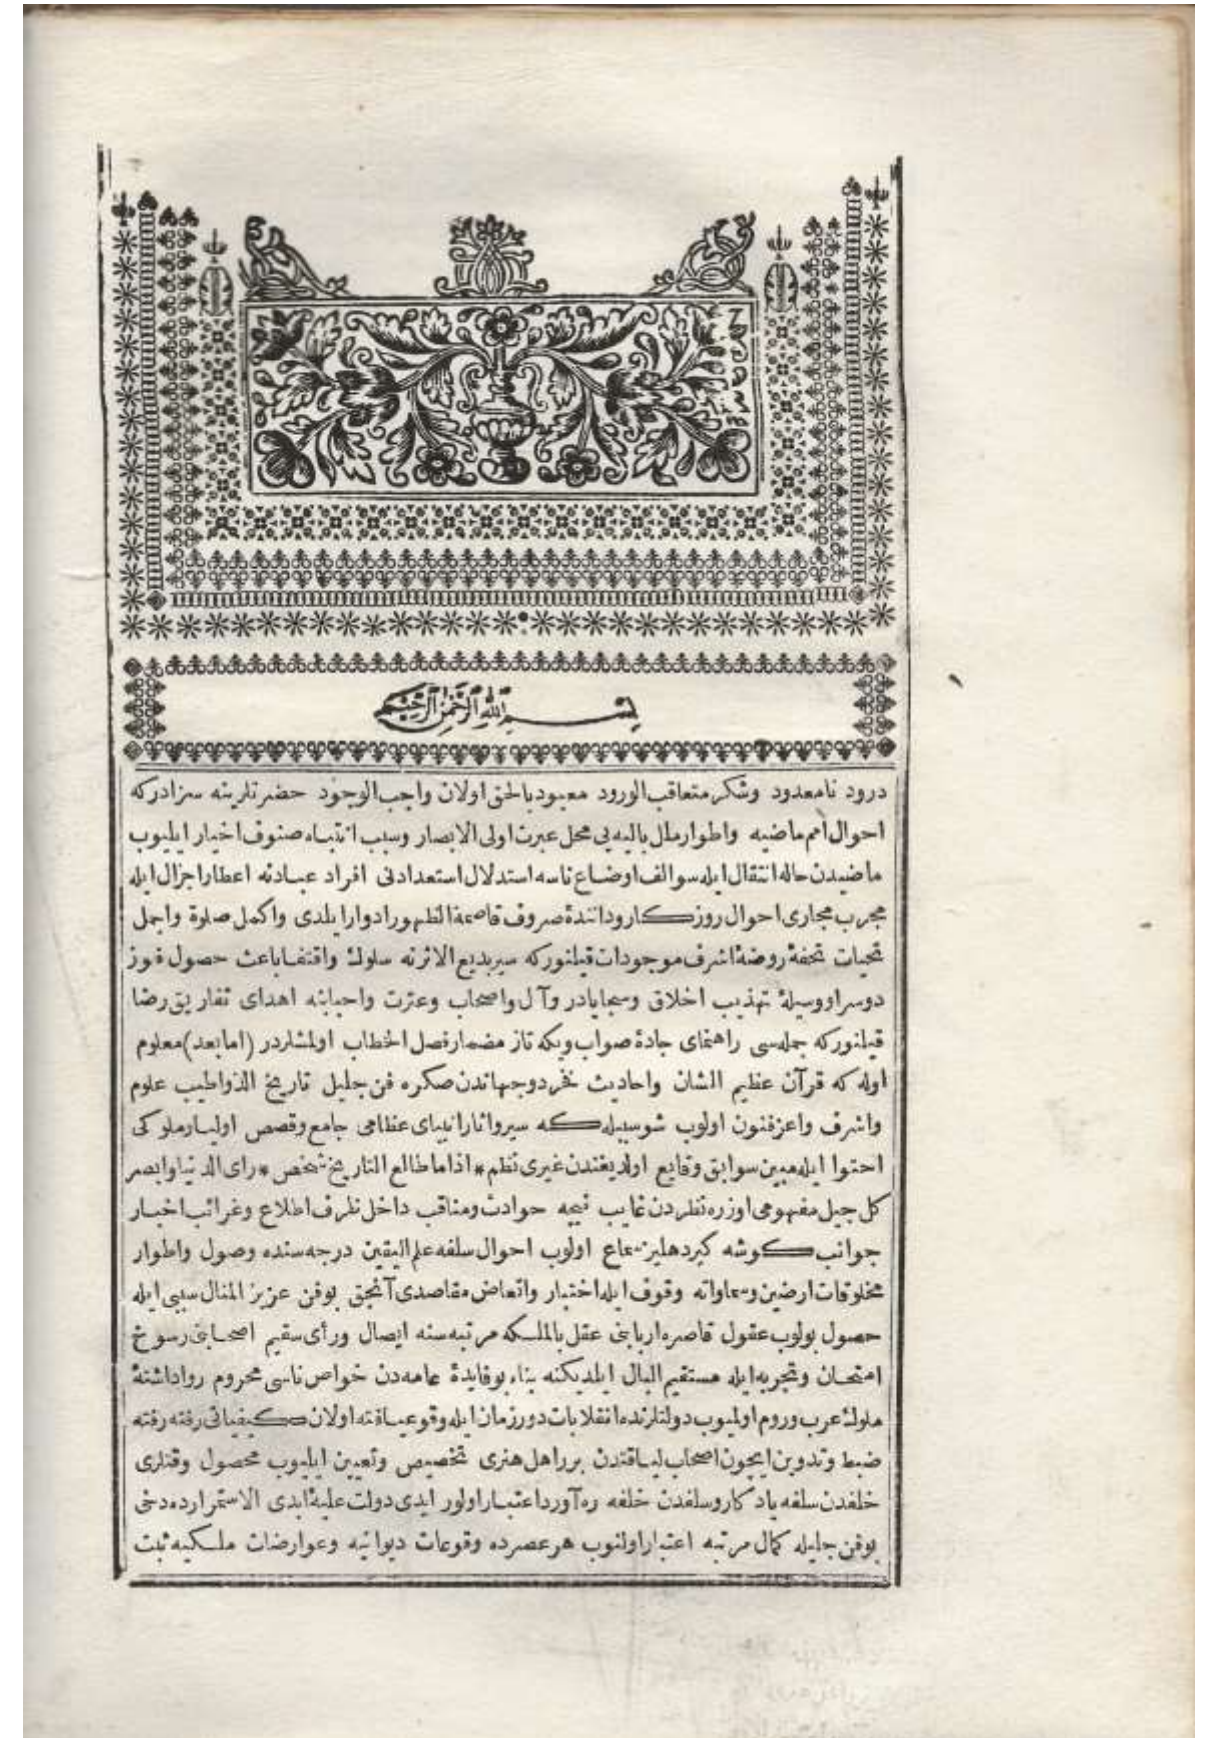 بسم الله الرحمن الرحيم
درود نامعدود وشكر متعاقب الورود معبود بالحق اولان واجب الوجود حضرتلرينه سزادركه
احوال امم ماضيه واطوار ملل باليه يى محل عبرت اولى الابصار وسبب انتباه صنوف اخيار ايليوب
ماضيدن حاله انتقال ايله سوالف اوضاع ناسه استدلال استعدادنى افراد عبادنه اعطار اجزال ايله
مجرب مجارى احوال روزكار وداننده صروف قاصمة الظهور ادوار ايلدى واكمل صلوة واجمل
تحيات تحفۀ روضۀ اشرف موجودات قيلنوركه سير بديع الاثرنه سلوك واقتفا باعث حصول فوز
دوسرا ووسيلۀ تهذيب اخلاق وسجايادر وآل واصحاب وعترت واحبابنه اهداى تفاريق رضا
قيلنوركه جمله سى راهنماى جادۀ صواب ويكه تاز مضمار فصل الخطاب اولمشلردر (اما بعد) معلوم
اوله كه قرآن عظيم الشان واحاديث فخر دوجهاندن صكره فن جليل تاريخ الذ واطيب علوم
واشرف واعز فنون اولوب شو سببله كه سير واثار انبياى عظامى جامع وقصص اوليا وملوكى
احتوا ايله مبين سوابق وقايع اولديغندن غيرى نظم * اذا ما طالع التاريخ شخص * راى الدنيا وابصر
كل جيل مفهومى اوزره نظردن غايب نيجه حوادث ومناقب داخل نظرف اطلاع وغرائب اخبار
جوانب كوشه كير دهليز سماع اولوب احوال سلفه علم اليقين درجه سنده وصول واطوار
مخلوقات ارضين وسماواته وقوف ايله اختبار واتعاض مقاصدى آنجق بوفن عزيز المنال سببى ايله
حصول بولوب عقول قاصره اربابنى عقل بالملكه مرتبه سنه ايصال ورأى سقيم اصحابنى رسوخ
امتحان وتجربه ايله مستقيم البال ايلديكنه بناء بوفايدۀ عامه دن خواص ناسى محروم روا داشتۀ
ملوك عرب وروم اولميوب دولتلرنده انقلابات دور زمان ايله وقوعيافته اولان كيفياتى رفته رفته
ضبط وتدوين ايچون اصحاب لياقتدن بر اهل هنرى تخصيص وتعيين ايليوب محصول وقتلرى
خلفدن سلفه يادكار وسلفدن خلفه ره آورد اعتبار اولور ايدى دولت عليۀ ابدى الاستمرارده دخى
بوفن جليله كمال مرتبه اعتبار اولنوب هر عصرده وقوعات ديوانيه وعوارضات ملكيه ثبت